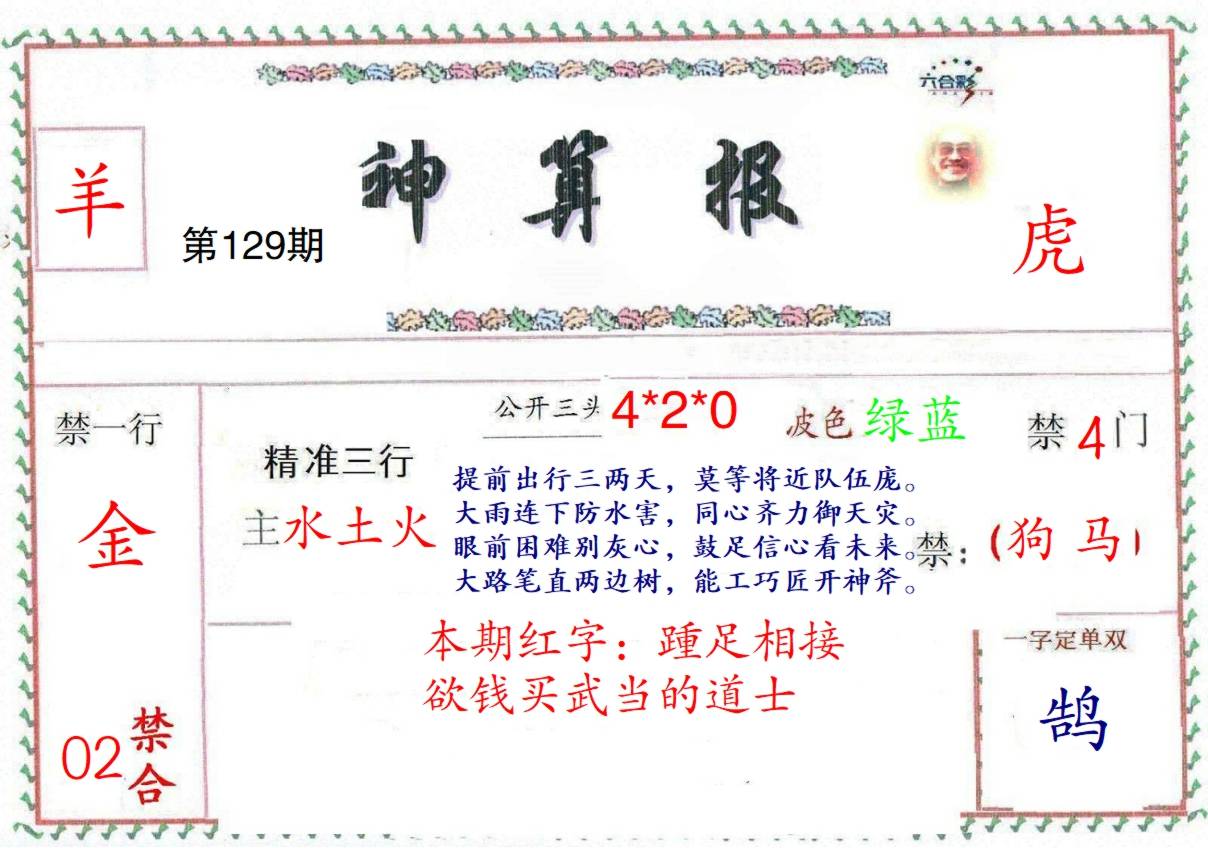 六合彩
神算报
羊
第129期
虎
禁一行
金
02
禁合
精准三行
主水土火
公开三头 4*2*0
波色 绿蓝
禁4门
禁：（狗 马）
提前出行三两天，莫等将近队伍庞。
大雨连下防水害，同心齐力御天灾。
眼前困难别灰心，鼓足信心看未来。
大路笔直两边树，能工巧匠开神斧。
本期红字：踵足相接
欲钱买武当的道士
一字定单双
鹄